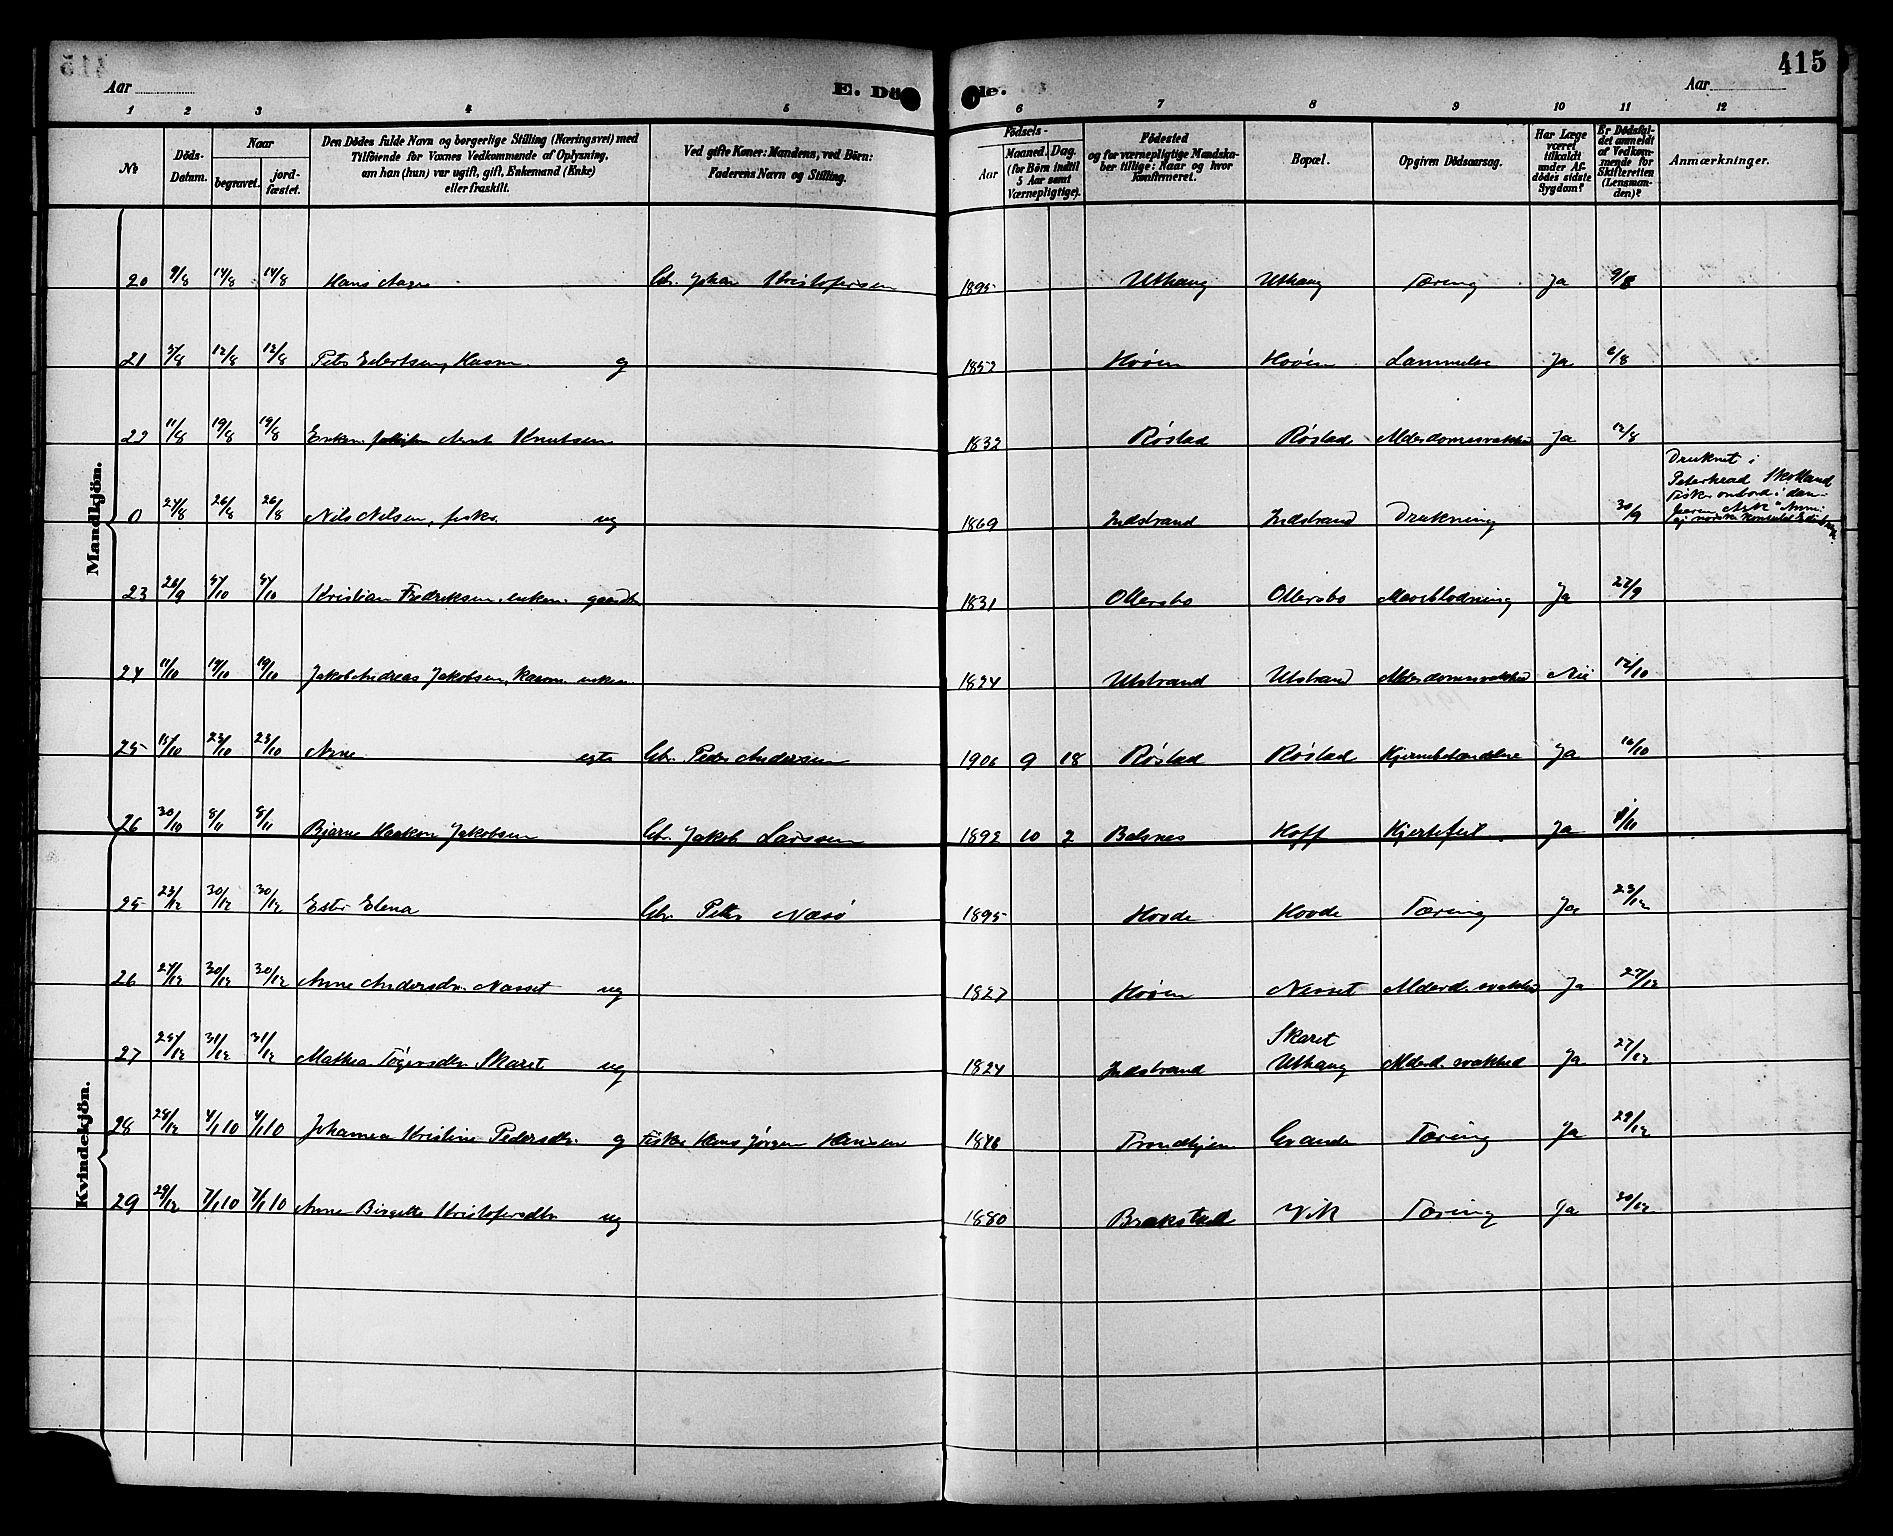 415
Aar
E. Dö de.
Aar
1 2 3 4 5 6 7 8 9 10 11 12
No
Döds-Datum.
Naar
begravet.
jordfæstet.
Den Dödes fulde Navn og borgerlige Stilling (Næringsvei) med
Tilföiende for Voxnes Vedkommende af Oplysning,
om han (hun) var ugift, gift, Enkemand (Enke)
eller fraskilt.
Ved gifte Koner: Mandens, ved Börn:
Faderens Navn og Stilling.
Födsels-
Aar
Maaned. Dag.
(for Börn indtil
5 Aar samt
Værnepligtige).
Födested
og for værnepligtige Mandska-
ber tillige: Naar og hvor
konfirmeret.
Bopæl.
Opgiven Dödsaarsag.
Har Læge
været
tilkaldt
under Af-
dödes sidste
Sygdom?
Er Dödsfal-
det anmeldt
af Vedkom-
mende for
Skifteretten
(Lensman-
den)?
Anmærkninger.
Mandkjön.
20 9/8 14/8 14/8 Hans Aage Gbr. Johan Kristofersen 1895 Uthaug Uthaug Tæring Ja 9/8
21 5/8 12/8 12/8 Peter Eilertsen, Kaarm. g 1852 Hovén Hovén Lammelse Ja 6/8
22 11/8 19/8 19/8 Enkem. Arnt Knutsen 1832 Röstad Röstad Alderdomssvakhed Ja 12/8
0 24/8 26/8 26/8 Nils Nilsen, fisker ug 1869 Indstrand Indstrand Drukning 30/9 Druknet i
Peterhead Skotland
Fisker ombord i dam-
23 26/9 5/10 5/10 Kristian Fredriksen, enkem. gaardbr. 1831 Ollersbo Ollersbo Maveblødning Ja 27/9
24 11/10 19/10 19/10 Jakob Andreas Jakobsen, Kaarm. enkem. 1824 Utstrand Utstrand Alderdomssvakhed Nei 12/10
25 15/10 23/10 23/10 Arne egte Gbr. Peder Andersen 1906 9 18 Röstad Röstad Hjernebetændelse Ja 16/10
26 30/10 8/11 8/11 Bjarne Haakon Jakobsen Gbr. Jakob Larssen 1892 10 2 Balsnes Hoff Hjertefeil Ja
Kvindekjön.
25 23/12 30/12 30/12 Ester Elena Gbr. Peter Næsö 1895 Hovde Hovde Tæring Ja 23/12
26 24/12 30/12 30/12 Anne Andersdtr. Næsset ug 1827 Hovén Næsset Alderd. svakhed Ja 27/12
27 25/12 31/12 31/12 Mathea Tögersdtr. Skaret ug 1824 Indstrand Skaret
Uthaug Alderd. svakhed Ja 27/12
28 28/12 4/1 10 4/1 10 Johanna Kristine Pedersdtr. g Fisker Hans Jörgen Hansen 1848 Trondhjem Grande Tæring Ja 29/12
29 29/12 7/1 10 7/1 10 Anne Birgitte Kristofersdtr. ug 1880 Brækstad Vik Tæring Ja 30/12